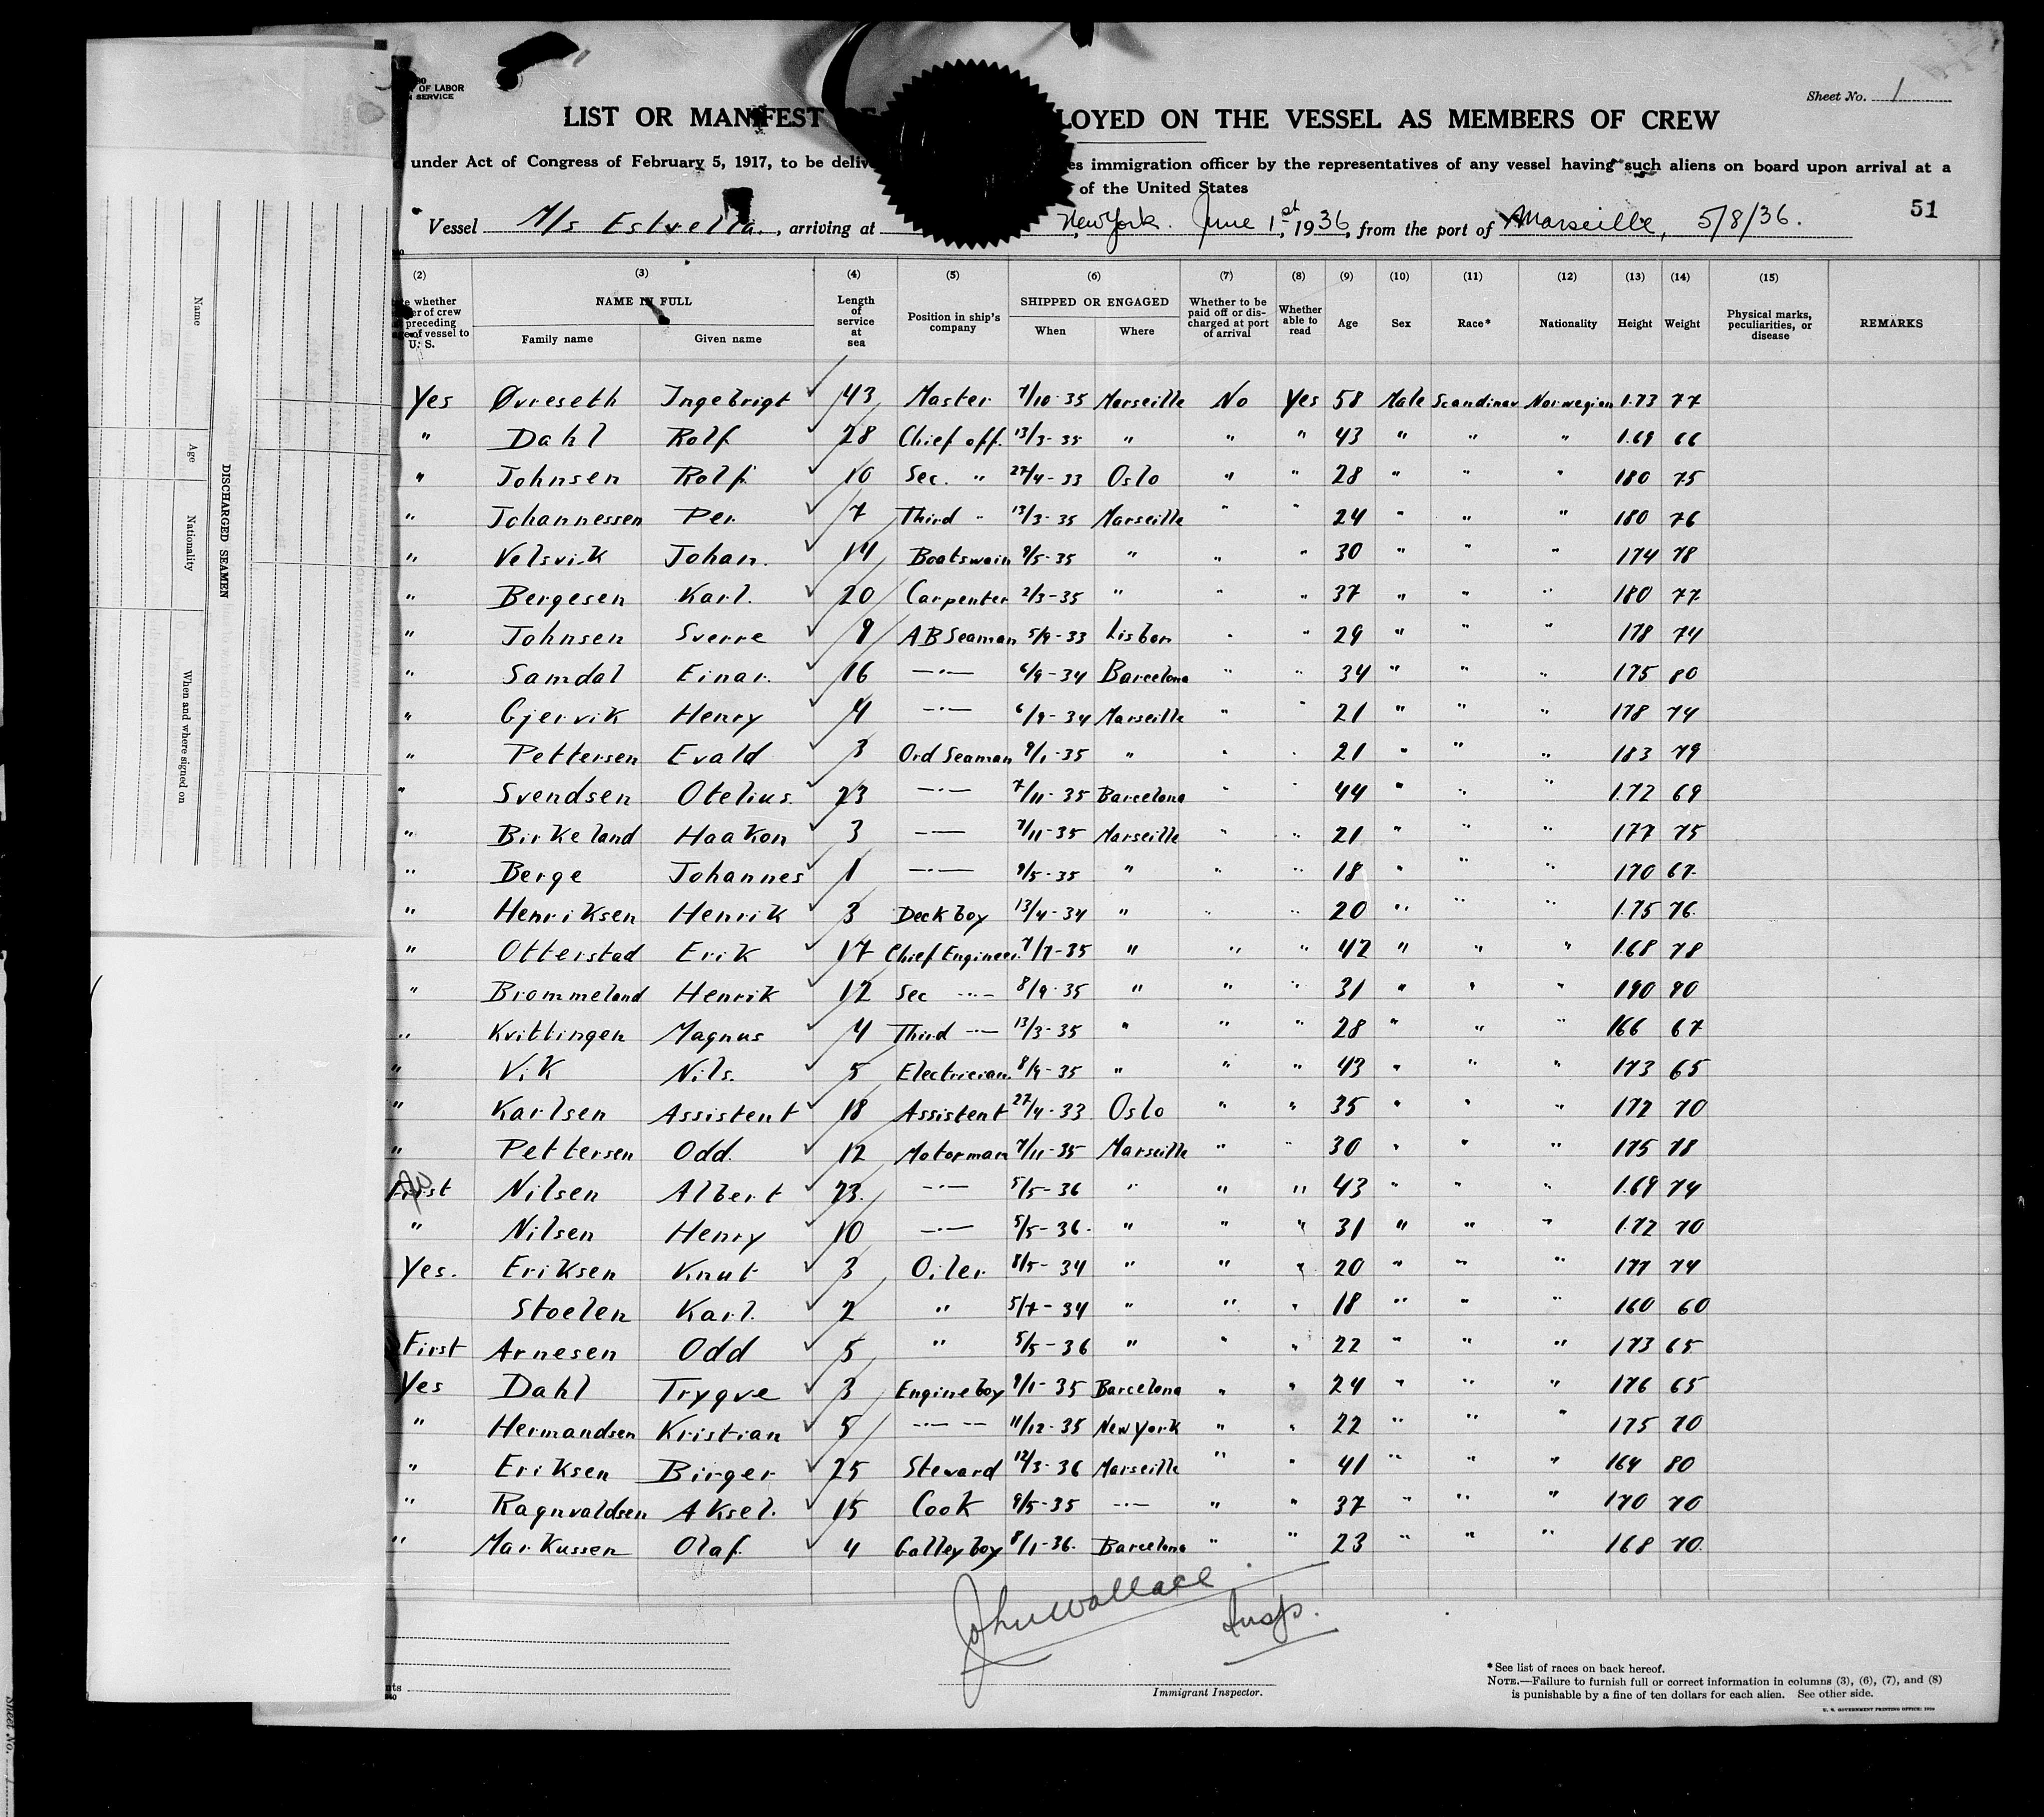 OF LABOR
SERVICE
Sheet No. 1
LIST OR MANIFEST LOYED ON THE VESSEL AS MEMBERS OF CREW
under Act of Congress of February 5, 1917, to be deliv es immigration officer by the representatives of any vessel having such aliens on board upon arrival at a
of the United States
51
Vessel M/s Estrella, arriving at New York. June 1st, 1936, from the port of Marseille, 5/8/36.
(2) (3) (4) (5) (6) (7) (8) (9) (10) (11) (12) (13) (14) (15)
whether er of crew preceding age of vessel to U. S. NAME IN FULL Family name Given name Length of service at sea Position in ship's company SHIPPED OR ENGAGED When Where Whether to be paid off or discharged at port of arrival Whether able to read Age Sex Race* Nationality Height Weight Physical marks, peculiarities, or disease REMARKS
Yes Øvreseth Ingebrigt 43 Master 7/10-35 Marseille No Yes 58 Male Scandinav Norwegian 1.73 77
" Dahl Rolf 28 Chief off. 13/3-35 " " " 43 " " " 1.69 66
" Johnsen Rolf 10 Sec. " 27/4-33 Oslo " " 28 " " " 180 75
" Johannessen Per 7 Third " 13/3-35 Marseille " " 24 " " " 180 76
" Velsvik Johan. 14 Boatswain 9/5-35 " " " 30 " " " 174 78
" Bergesen Karl. 20 Carpenter 2/3-35 " " " 37 " " " 180 77
" Johnsen Sverre 9 AB Seaman 5/9-33 Lisbon " " 29 " " " 178 74
" Samdal Einar. 16 —"— 6/9-34 Barcelona " " 34 " " " 175 80
" Gjervik Henry 4 —"— 6/9-34 Marseille " " 21 " " " 178 74
" Pettersen Evald 3 Ord Seaman 9/1-35 " " " 21 " " " 183 79
" Svendsen Otelius. 23 —"— 7/11-35 Barcelona " " 44 " " " 1.72 69
" Birkeland Haakon 3 —"— 7/11-35 Marseille " " 21 " " " 177 75
" Berge Johannes 1 —"— 9/5-35 " " " 18 " " " 170 67
" Henriksen Henrik 3 Deck boy 13/4-34 " " " 20 " " " 1.75 76
" Otterstad Erik 17 Chief Engineer 7/7-35 " " " 42 " " " 1.68 78
" Brommeland Henrik 12 Sec —"— 8/9-35 " " " 31 " " " 190 90
" Kvittingen Magnus 4 Third —"— 13/3-35 " " " 28 " " " 166 67
" Vik Nils. 5 Electrician. 8/9-35 " " " 43 " " " 173 65
" Karlsen Assistent 18 Assistent 27/4-33 Oslo " " 35 " " " 172 70
" Pettersen Odd. 12 Motorman 7/11-35 Marseille " " 30 " " " 175 78
First Nilsen Albert 23. —"— 5/5-36 " " " 43 " " " 1.69 74
" Nilsen Henry 10 —"— 5/5-36. " " " 31 " " " 1.72 70
Yes. Eriksen Knut 3 Oiler 8/5-34 " " " 20 " " " 177 74
Stoelen Karl. 2 " 5/7-34 " " " 18 " " " 160 60
First Arnesen Odd 5 " 5/5-36 " " " 22 " " " 173 65
Yes Dahl Trygve 3 Engine boy 9/1-35 Barcelona " " 24 " " " 176 65
" Hermandsen Kristian 5 —"— 11/12-35 New York " " 22 " " " 175 70
" Eriksen Birger 25 Stevard 12/3-36 Marseille " " 41 " " " 164 80
" Ragnvaldsen Aksel. 15 Cook 9/5-35 —"— " " 37 " " " 170 70
" Markussen Olaf 4 Galley boy 8/1-36. Barcelona " " 23 " " " 168 70
John Wallace Insp.
Immigrant Inspector.
*See list of races on back hereof.
NOTE.—Failure to furnish full or correct information in columns (3), (6), (7), and (8)
is punishable by a fine of ten dollars for each alien. See other side.
U. S. GOVERNMENT PRINTING OFFICE
DISCHARGED SEAMEN
Name
Age
Nationality
When and where signed on
Sheet No.